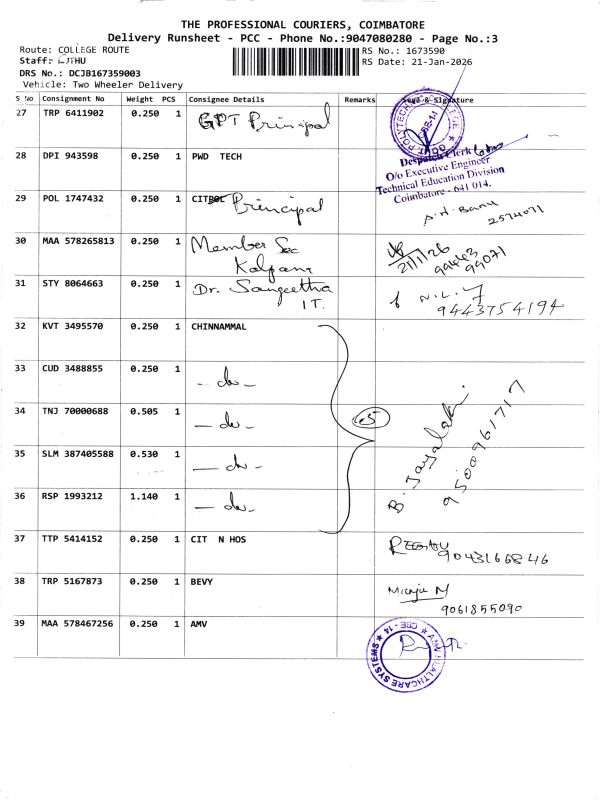 THE PROFESSIONAL COURIERS, COIMBATORE
Delivery Runsheet - PCC - Phone No.:9047080280 - Page No.:3
Route: COLLEGE ROUTE
RS No.: 1673590
Staff: JITHU
RS Date: 21-Jan-2026
DRS No.: DCJB167359003
Vehicle: Two Wheeler Delivery
S No Consignment No Weight PCS Consignee Details Remarks Seal & Signature
27 TRP 6411902 0.250 1 GPT Principal
28 DPI 943598 0.250 1 PWD TECH
Despatch Clerk
O/o Executive Engineer
Technical Education Division
Coimbatore - 641 014.
29 POL 1747432 0.250 1 CITBOL Principal
A.H. Banu
2574071
30 MAA 578265813 0.250 1 Member Sec
Kalpana
21/1/26
99443
99071
31 STY 8064663 0.250 1 Dr. Sangeetha
I T.
N.L.
9443754194
32 KVT 3495570 0.250 1 CHINNAMMAL
33 CUD 3488855 0.250 1 - do -
34 TNJ 70000688 0.505 1 - do -
65
B. Jayalaksmi
9500961717
35 SLM 387405588 0.530 1 - do -
36 RSP 1993212 1.140 1 - do -
37 TTP 5414152 0.250 1 CIT N HOS
9043166846
38 TRP 5167873 0.250 1 BEVY
9061855090
39 MAA 578467256 0.250 1 AMV
HEALTHCARE SYSTEMS ★ CBE - 14 ★